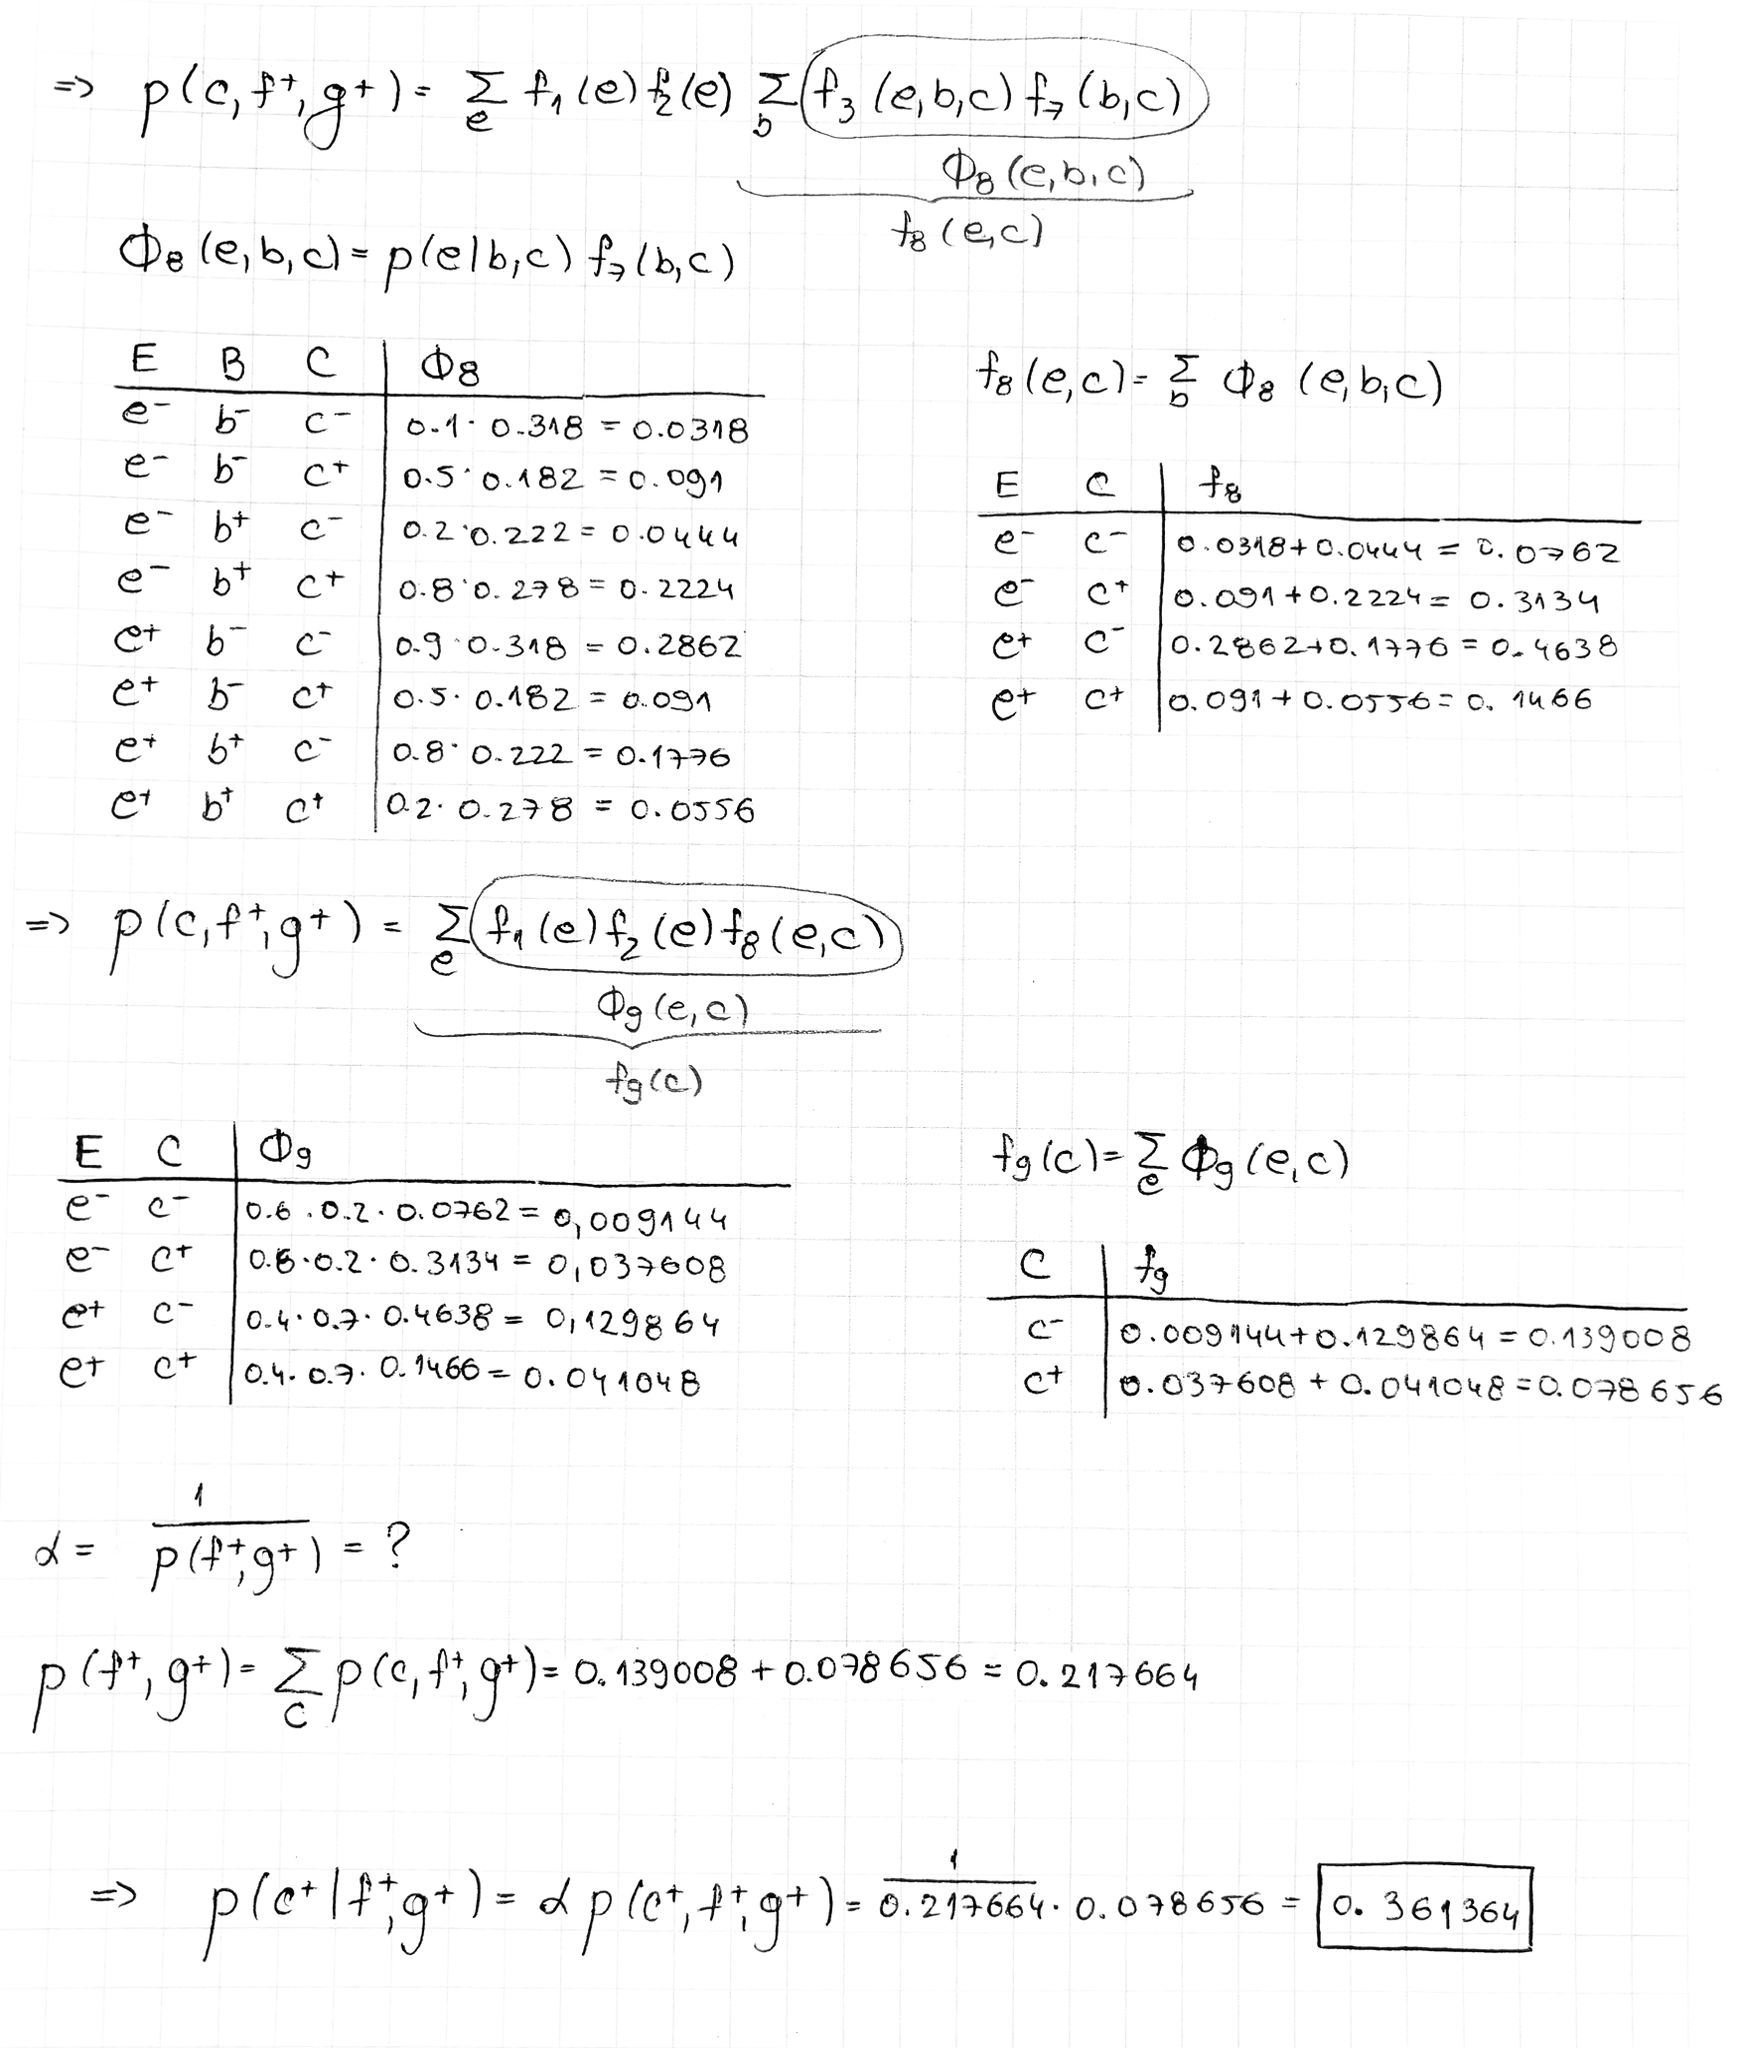 => p(c, f⁺, g⁺) = Σ_e f₁(e) f₂(e) Σ_b f₃(e,b,c) f₇(b,c)
Φ₈(e,b,c)
f₈(e,c)
Φ₈(e,b,c) = p(e|b,c) f₇(b,c)
E B C | Φ₈
e⁻ b⁻ c⁻ | 0.1 · 0.318 = 0.0318
e⁻ b⁻ c⁺ | 0.5 · 0.182 = 0.091
e⁻ b⁺ c⁻ | 0.2 · 0.222 = 0.0444
e⁻ b⁺ c⁺ | 0.8 · 0.278 = 0.2224
e⁺ b⁻ c⁻ | 0.9 · 0.318 = 0.2862
e⁺ b⁻ c⁺ | 0.5 · 0.182 = 0.091
e⁺ b⁺ c⁻ | 0.8 · 0.222 = 0.1776
e⁺ b⁺ c⁺ | 0.2 · 0.278 = 0.0556
f₈(e,c) = Σ_b Φ₈(e,b,c)
E C | f₈
e⁻ c⁻ | 0.0318 + 0.0444 = 0.0762
e⁻ c⁺ | 0.091 + 0.2224 = 0.3134
e⁺ c⁻ | 0.2862 + 0.1776 = 0.4638
e⁺ c⁺ | 0.091 + 0.0556 = 0.1466
=> p(c, f⁺, g⁺) = Σ_e f₁(e) f₂(e) f₈(e,c)
Φ₉(e,c)
f₉(c)
E C | Φ₉
e⁻ c⁻ | 0.6 · 0.2 · 0.0762 = 0,009144
e⁻ c⁺ | 0.6 · 0.2 · 0.3134 = 0,037608
e⁺ c⁻ | 0.4 · 0.7 · 0.4638 = 0,129864
e⁺ c⁺ | 0.4 · 0.7 · 0.1466 = 0.041048
f₉(c) = Σ_e Φ₉(e,c)
C | f₉
c⁻ | 0.009144 + 0.129864 = 0.139008
c⁺ | 0.037608 + 0.041048 = 0.078656
α = 1 / p(f⁺, g⁺) = ?
p(f⁺, g⁺) = Σ_c p(c, f⁺, g⁺) = 0.139008 + 0.078656 = 0.217664
=> p(c⁺ | f⁺, g⁺) = α p(c⁺, f⁺, g⁺) = 1 / 0.217664 · 0.078656 = 0.361364